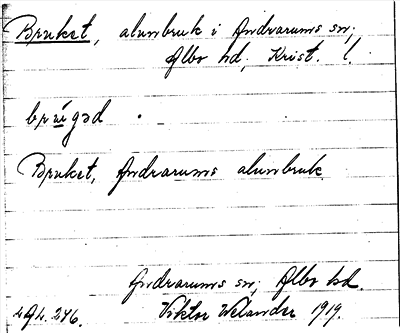 Bruket, alunbruk i Andrarums sn;
Albo hd, Krist. l.
Bruket, Andrarums alunbruk
Andrarums sn; Albo hd.
Viktor Welander 1919.